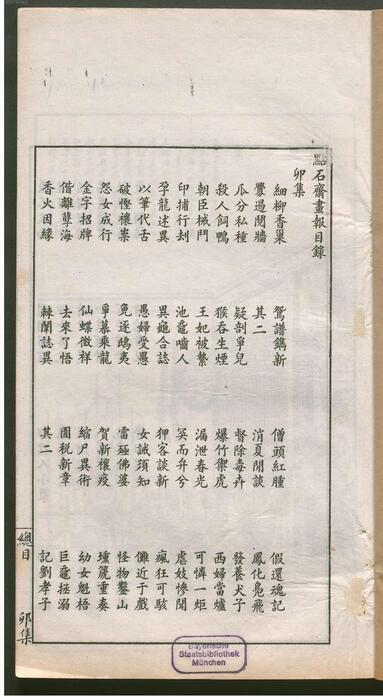 點石齋畫報目錄
卯集
細柳香巢 鴛譜鐫新 僧頭紅腫 假還魂記
釁過鬩牆 其二 消夏閒談 鳳化鳧飛
瓜分私種 疑剖寧兒 督除毒卉 發養犬子
殺人飼鴨 猴吞生煙 爆竹禦虎 西婦當爐
朝臣械鬥 王妃被縶 漏泄春光 可憐一炬
印捕行刦 池黿嚙人 冥而升兮 虐妓慘聞
孕龍述異 異龜合誌 狎客談新 瘋狂可駭
以筆代舌 愚婦受愚 女誡須知 儺近于戲
破慳禳祟 免逐鴟夷 雷殛佛婆 怪物鑿山
怨女成行 爭慕乘龍 賀新禳疫 壎篪重奏
金字招牌 仙蝶徵祥 縮尸異術 幼女魁梧
偕離孽海 去來了悟 團税新章 巨黿拯溺
香火因緣 棘闈誌異 其二 記劉孝子
總目 卯集
Bayerische
Staatsbibliothek
München